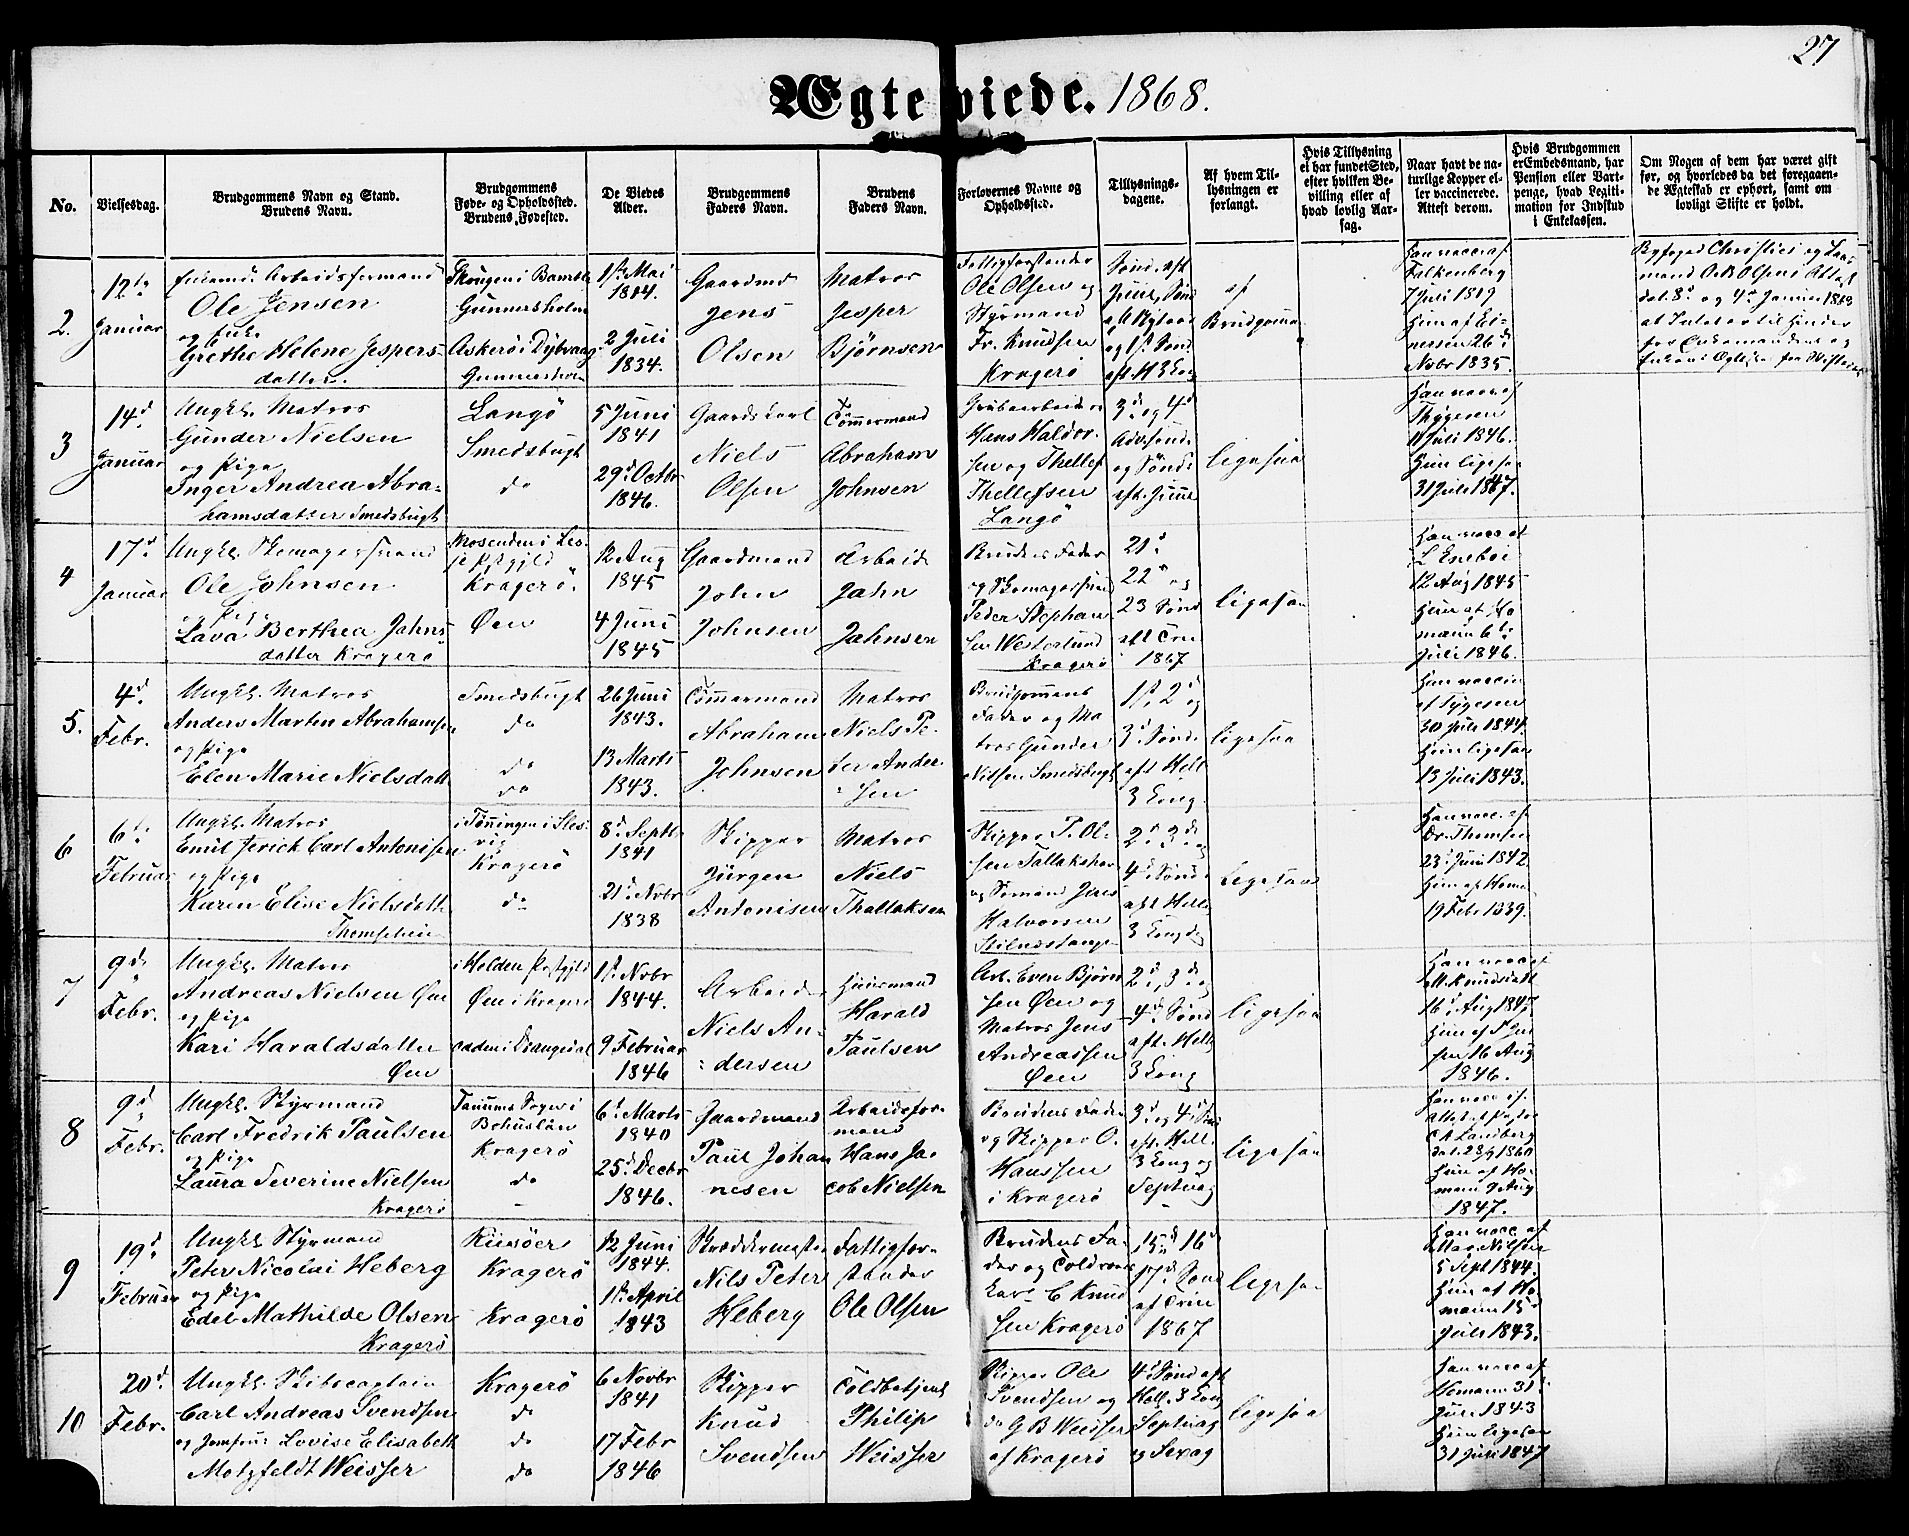 27
Ægteviede. 1868.
No.
Vielsesdag.
Brudgommens Navn og Stand.
Brudens Navn.
Brudgommens
Føde- og Opholdssted.
Brudens Fødested.
De Viedes
Alder.
Brudgommens
Faders Navn.
Brudens
Faders Navn.
Forlovernes Navne og
Opholdssted.
Tillysnings-
dagene.
Af hvem Til-
lysningen er
forlangt.
Hvis Tillysning
ei har fundet Sted,
efter hvilken Be-
villing eller af
hvad lovlig Aar-
sag.
Naar havt de na-
turlige Kopper el-
ler vaccinerede.
Attest derom.
Hvis Brudgommen
er Embedsmand, har
Pension eller Vart-
penge, hvad Legiti-
mation for Indskud
i Enkekassen.
Om Nogen af dem har været gift
før, og hvorledes da det foregaaen-
de Ægteskab er ophørt, samt om
lovligt Skifte er holdt.
2.
12te
Januar
Enkemd. Arbeidsformand
Ole Jensen
og Enke
Grethe Helene Jespers-
datter.
Skougen i Bamble
Gunnersholm
Askerø i Dybvaag
Gunnersholm
1ste Mai
1814.
2 Juli
1834.
Gaardmd
Jens
Olsen
Matros
Jesper
Bjørnsen
Fattigforstander
Ole Olsen og
Styrmand
Fr. Knudsen
Kragerø
Sønd. eft
Juul, Sønd
eft Nytaar
og 1st Sønd
eft. H 3 Kong
af
Brudgommen
Han vacc af
Falkenberg
7 Juli 1819
Hun af Ei-
nersen 26 d
Novbr 1835.
Byfoged Christies og
mand O Olsens Attest
dat. 8d og 4d Januar 1868
3
14d
Januar
Ungkl. Matros
Gunder Nielsen
og Pige
Inger Andrea Abra-
hamsdatter Smedsbugt
Langö
Smedsbugt
do
5 Juni
1841
29d Octbr
1846.
Gaardskarl
Niels
Olsen
Tömmermand
Abraham
Johnsen
Grubearbeider
Hans Haldor-
sen og Thellef
Thellefsen
Langö
3d og 4d
Adv. sönd.
og Sönd
eft. Juul
ligesaa
Han vacc af
Thygesen
11 Juli 1846.
Hun ligesaa
31 Juli 1847.
4
17d
Januar
Ungkl. Skomagersvend
Ole Johnsen
og Pige
Lava Berthea Jahns-
datter Kragerö
Mosenden i Les-
je Pstgjeld
Kragerö.
Öen
12 Aug
1845
4 Juni
1845
Gaardmand
John
Johnsen
Arbeid
Jahn
Jahnsen
Brudens Fader
og Skomagersvend
Peder Stephan-
sen Westerlund
Kragerö
21d
22d og
23 Sönd
eft Trin
1867
ligesaa
Han vacc af
L Eneboe
12 Aug 1845
Hun af Ho
mann 6te
Juli 1846.
5.
4d
Febr.
Ungkl. Matros
Anders Martin Abrahamsen
og Pige
Elen Marie Nielsdatt
Smedsbugt
do
do
do
26 Juni
1843.
13 Marts
1843.
Tömmermand
Abraham
Johnsen
Matros
Niels Pe-
der Ander-
sen
Brudgommens
Fader og Ma
tros Gunder
Nilsen Smedsbugt
1st, 2d og
3d Sönd.
eft Hell
3 Kong.
ligesaa
Han vaccin
af Tygesen
30 Juli 1844
Hun ligesaa
13 Juli 1843.
6
6te
Februar
Ungkl. Matros
Emil Jerich Carl Antonisen
og Pige
Karen Elise Nielsdatt
i Tönningen i Sles-
vig
Kragerö
do
8d Septbr
1841
21d Novbr
1838
Skipper
Jürgen
Antonisen
Matros
Niels
Thallaksen
Skipper P. Ol-
sen Tallakshav
og Sömand Jens
Halvorsen
Stilnestangen
2d 3d og
4d Sönd
eft Hell
3 Kongdg
Ligesaa
Han vacc. af
Dr. Thomsen
23d Juni 1842
Hun af Homan
19 Feb. 1839.
7
9de
Febr.
Ungkl. Matros
Andreas Nielsen Öen
og Pige
Kari Haraldsdatter
Öen
i Holden Pstgjeld
Öen i Kragerö
i Drangedal
1st Novbr
1844.
9 Februar
1846
Arbeid.
Niels An-
dersen
Huusmand
Harald
Paulsen
Arb. Even Björn
sen Öen og
Matros Jens
Andreassen
Öen
2d, 3d og
4d Sönd
eft. Hell
3 Kong
ligesaa
Han vacc af
M. Knudsdatt
16d Aug 1847
Hun af
sen 16 Aug
1846.
8
9d
Febr.
Ungkl. Styrmand
Carl Fredrik Paulsen
og Pige
Laura Severine Nielsen
Kragerö
Tanums Sogn i
Bohuslän
Kragerö
do
6d Marts
1840
25d Decbr
1846.
Gaardmand
Paul Johan
nesen
Arbeidsfor-
mand
Hans Ja-
cob Nielsen
Brudens Fader
og Skipper O.
Hanssen
i Kragerö
3d og 4d Sönd
eft. Hell.
3 Kong og
Septuag
ligesaa
Han vacc. af
Attest Pastor
C A Landberg
Hun af Ho-
man 9 Aug
1847.
9
19d
Februar
Ungkl Styrmand
Peter Nicolai Heberg
og Pige
Edel Mathilde Olsen
Kragerö
Riisöer
Kragerö
Kragerö
12 Juni
1844.
1ste April
1843
Skræddermester
Nils Peter
Heberg
Fattigfor-
stander
Ole Olsen
Brudens Fa-
der og Toldroers
karl C Knud
sen Kragerö
15d 16d
17d Sönd
af Trin
1867
ligesaa
Han vacc af
Nilsen
5 Sept 1844.
Hun af Ho
mann 15d
Juli 1843.
10
20d.
Febr.
Ungkl. Skibscaptain
Carl Andreas Svendsen
og Jomfrue Lovise Elisabeth
Motzfeldt Weisser
Kragerö
do
do
do
6 Novbr
1841
17 Febr
1846
Skipper
Knud
Svendsen
Toldbetjent
Philip
Weisser
Skipper Ole
Svendsen og
do G B Weisser
af Kragerö
4d Sönd eft
Hell. 3 Kong
Septuag
og Sexag
ligesaa
Han vacc af
Homann 31
Juli 1843
Hun ligesaa
31 Juli 1847